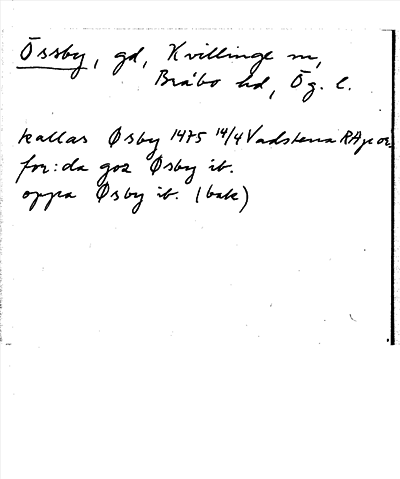 Össby, gd, Kvillinge sn,
Bråbo hd, Ög. l.
kallas Øsby 1475 14/4 Vadstena RAp or.
for:da goz Øsby ib.
oppa Øsby ib. (bak)